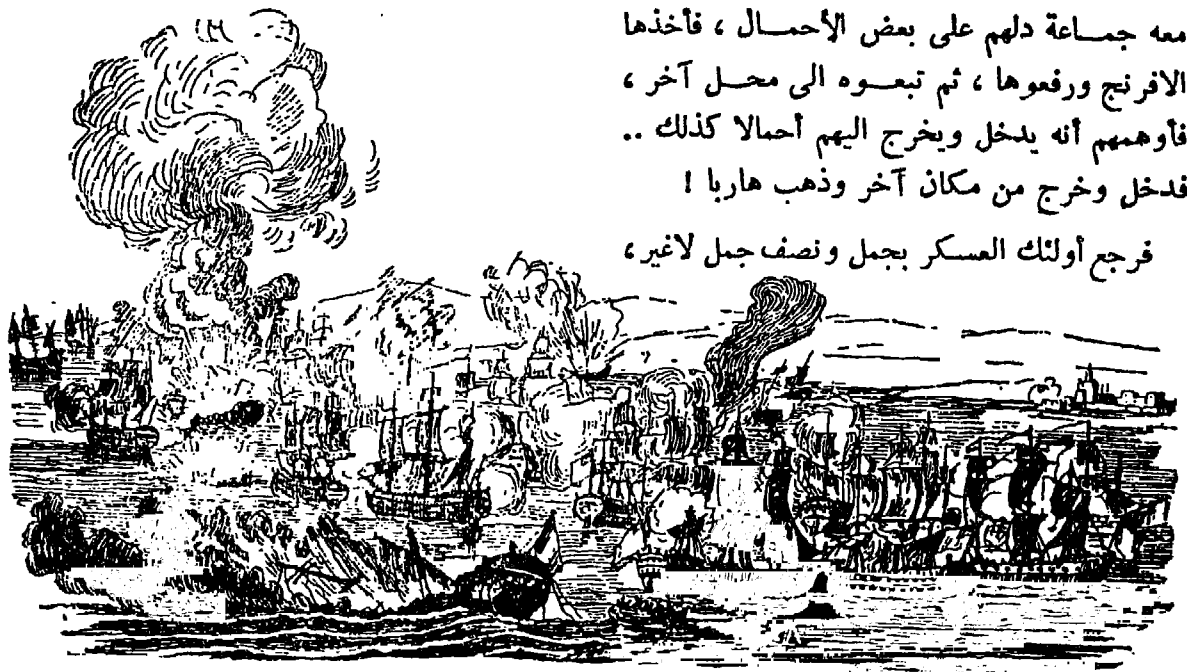 معه جمـــاعة دلهم على بعض الأحمـــال ، فأخذها
الافرنج ورفعوها ، ثم تبعـــوه الى محـــل آخر ،
فأوهمهم أنه يدخل ويخرج اليهم أحمالا كذلك ..
فدخل وخرج من مكان آخر وذهب هاربا !
فرجع أولئك العسكر بجمل ونصف جمل لاغير ،